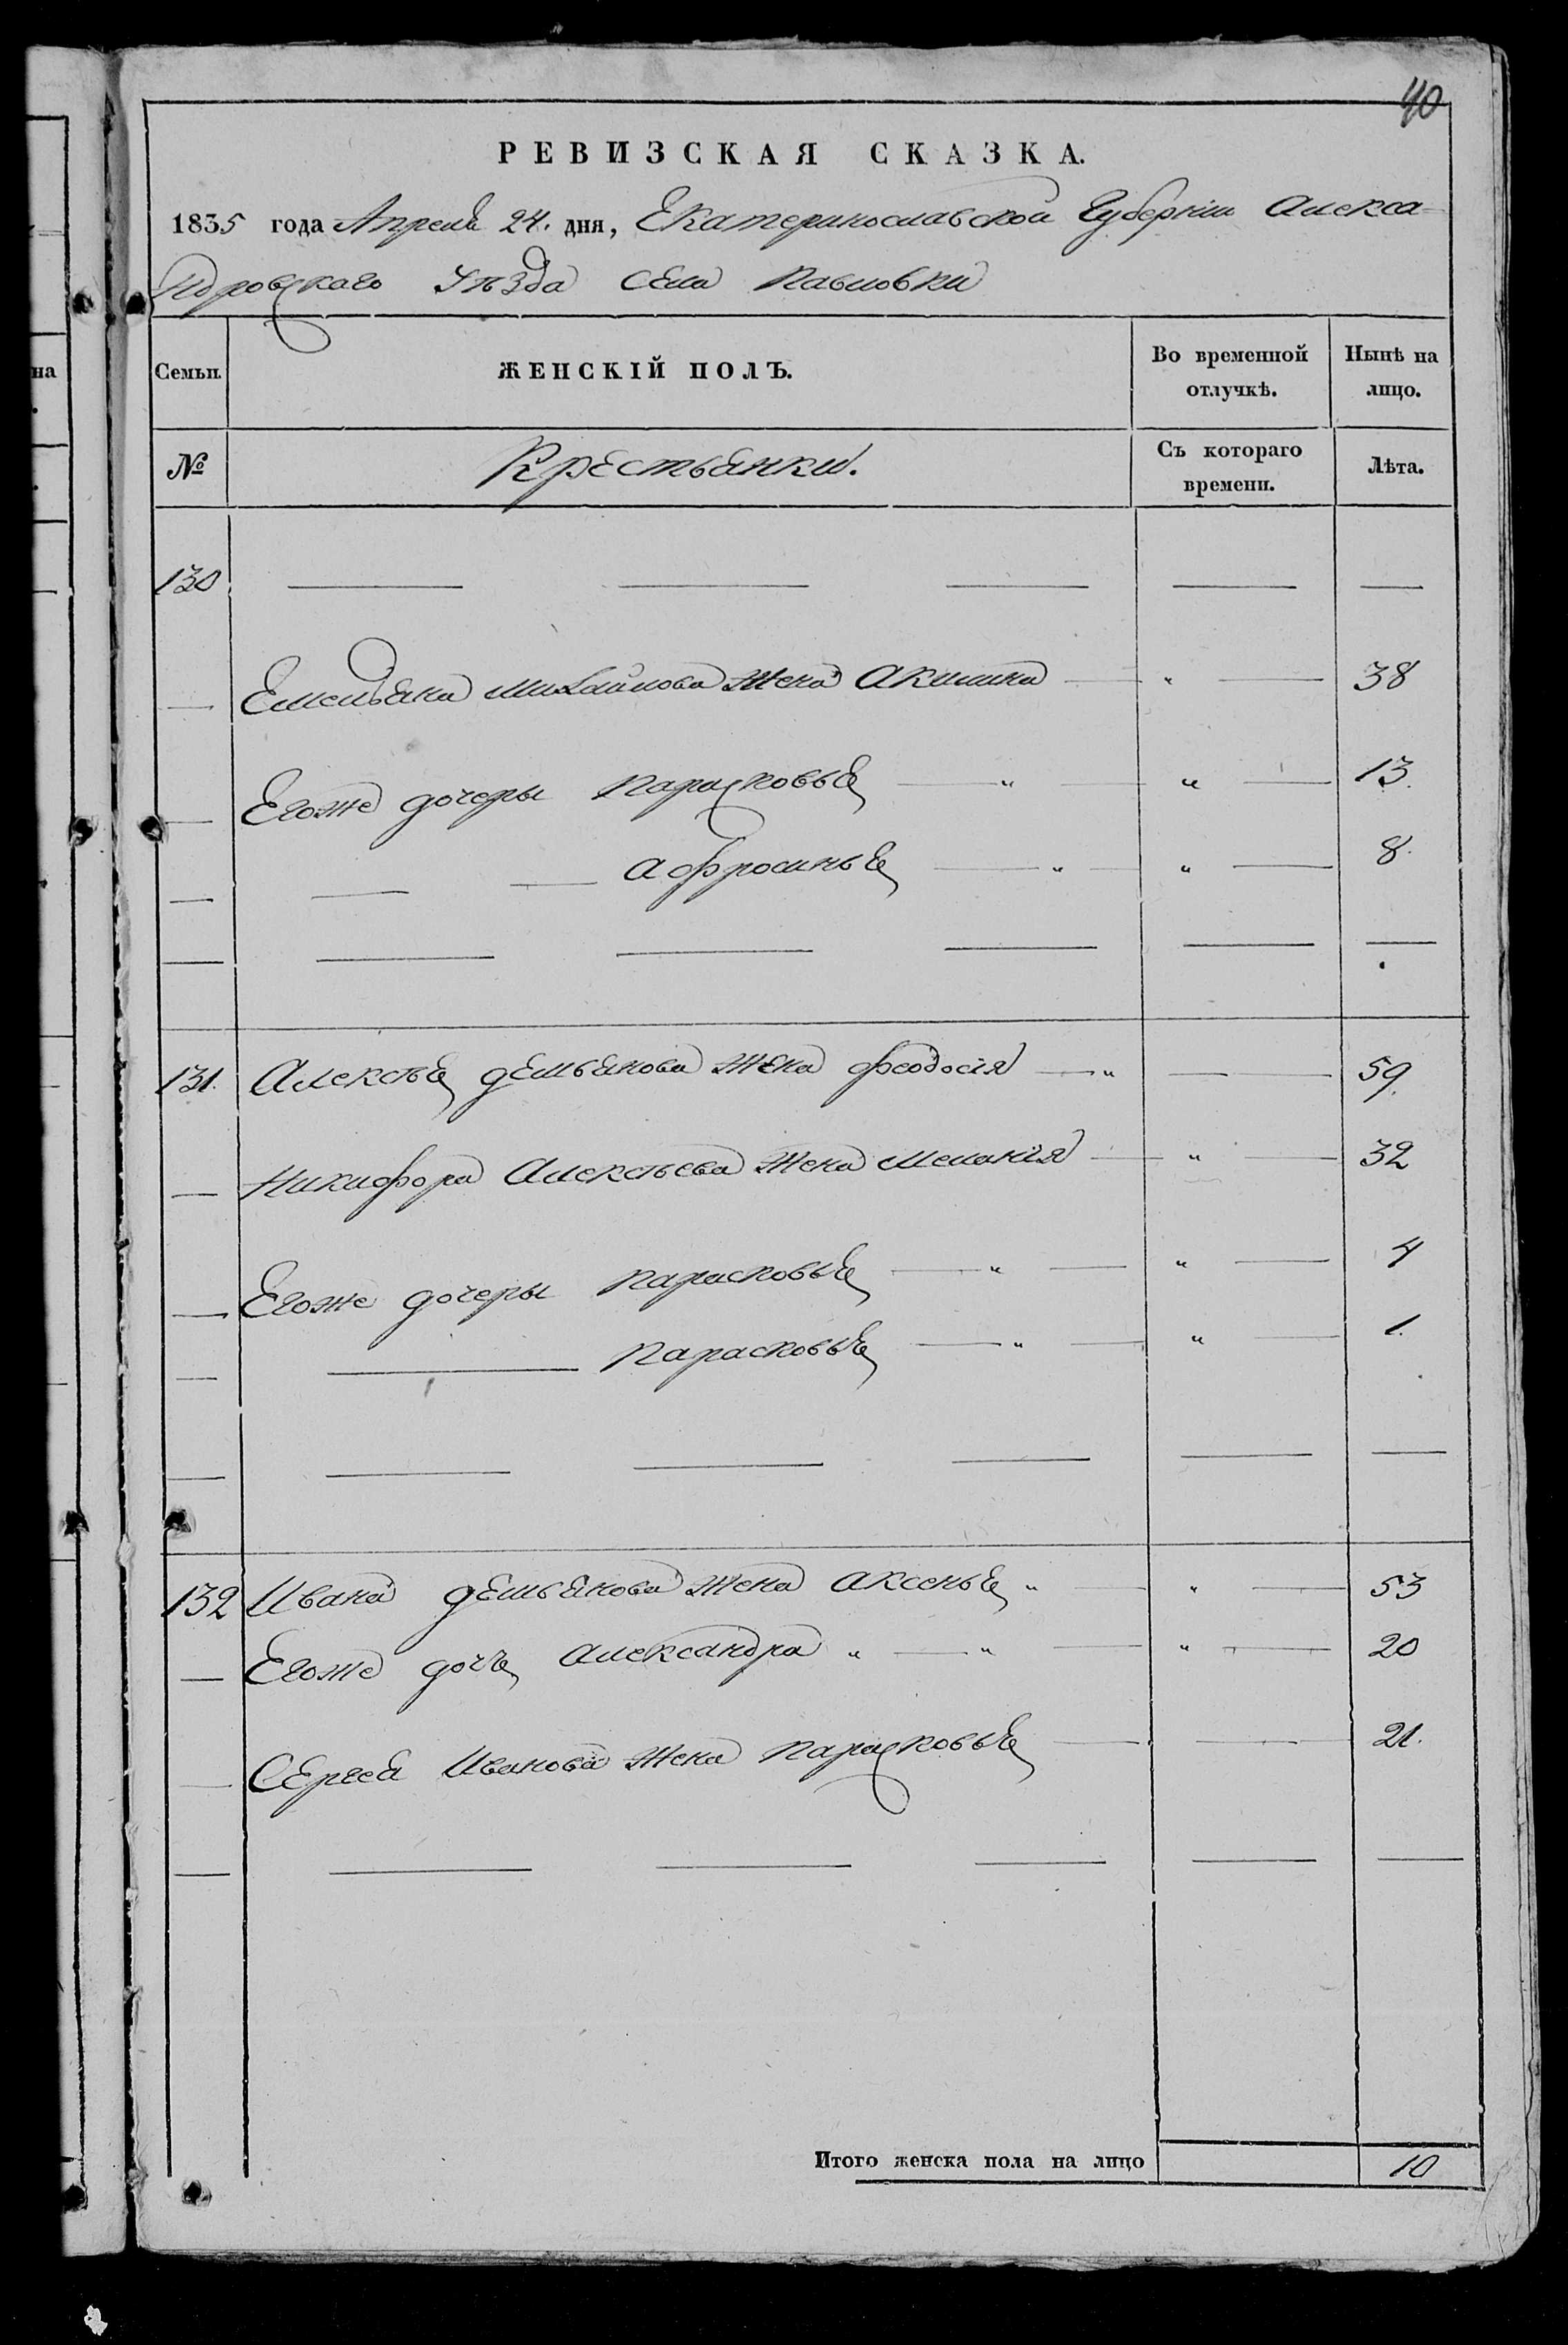 40
РЕВИЗСКАЯ СКАЗКА.
1835 года Апреля 24. дня, Екатеринославской Губернии Алекса-
ндровскаго Уѣзда Села Павловки
Семьи. ЖЕНСКІЙ ПОЛЪ. Во временной отлучкѣ. Нынѣ на лицо.
№ Крестьянки. Съ котораго времени. Лѣта.
130 — — — — —
— Емельяна Михайлова жена Акилина — „ — 38
— Егоже дочеры Парасковья — „ — „ — 13.
— — — Афросинья — „ — „ — 8.
— — — — — —
131. Алексѣя Демьянова жена Феодосія — „ — 59.
— Никифора Алексѣева жена Меланія — „ — 32
— Егоже дочеры Парасковья — „ — „ — 4
— — Парасковья — „ — „ — 1.
— — — — — —
132 Ивана Демьянова жена Аксенья „ — „ — 53
— Егоже дочь Александра „ — „ — „ — 20
— Сергея Иванова жена Парасковья — — 21.
— — — — — —
Итого женска пола на лицо 10
на